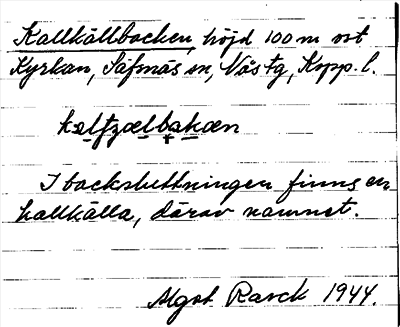 Kallkällbacken, höjd 100 m not
Kyrkan, Säfsnäs sn, Näs tg, Kopp. l.
kalfzælbakæn
I backsluttningen finns en
kallkälla, därav namnet.
Algot Rasck 1944.